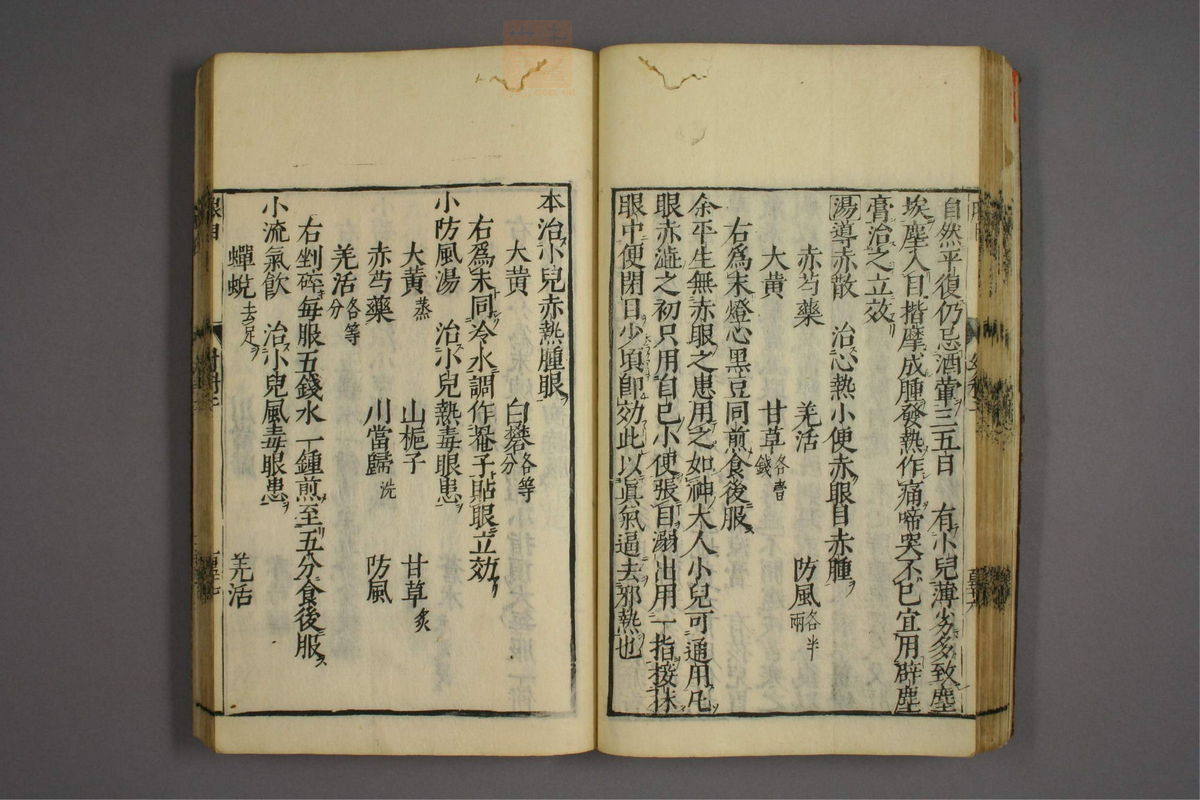 自然平復仍忌酒葷三五日　有小兒薄劣多致塵
埃塵入目揩摩成腫發熱作痛啼哭不已宜用辟塵
膏治之立效
湯導赤散　治心熱小便赤眼目赤腫
赤芍藥　羌活　防風各半兩
大黄　甘草各壹錢
右爲末燈心黑豆同煎食後服
余平生無赤眼之患用之如神大人小兒可通用凡
眼赤澁之初只用自已小便張目溺出用一指接抹
眼中便閉目少項即効此以眞氣逼去邪熱也
本治小兒赤熱腫眼
大黄　白礬各等分
右爲末同冷水調作菴子貼眼立効
小防風湯　治小兒熱毒眼患
大黄蒸　山梔子　甘草炙
赤芍藥　川當歸洗　防風
羌活各等分
右剉碎每服五錢水一鍾煎至五分食後服
小流氣飲　治小兒風毒眼患
蟬蛻去足　羌活
眼目